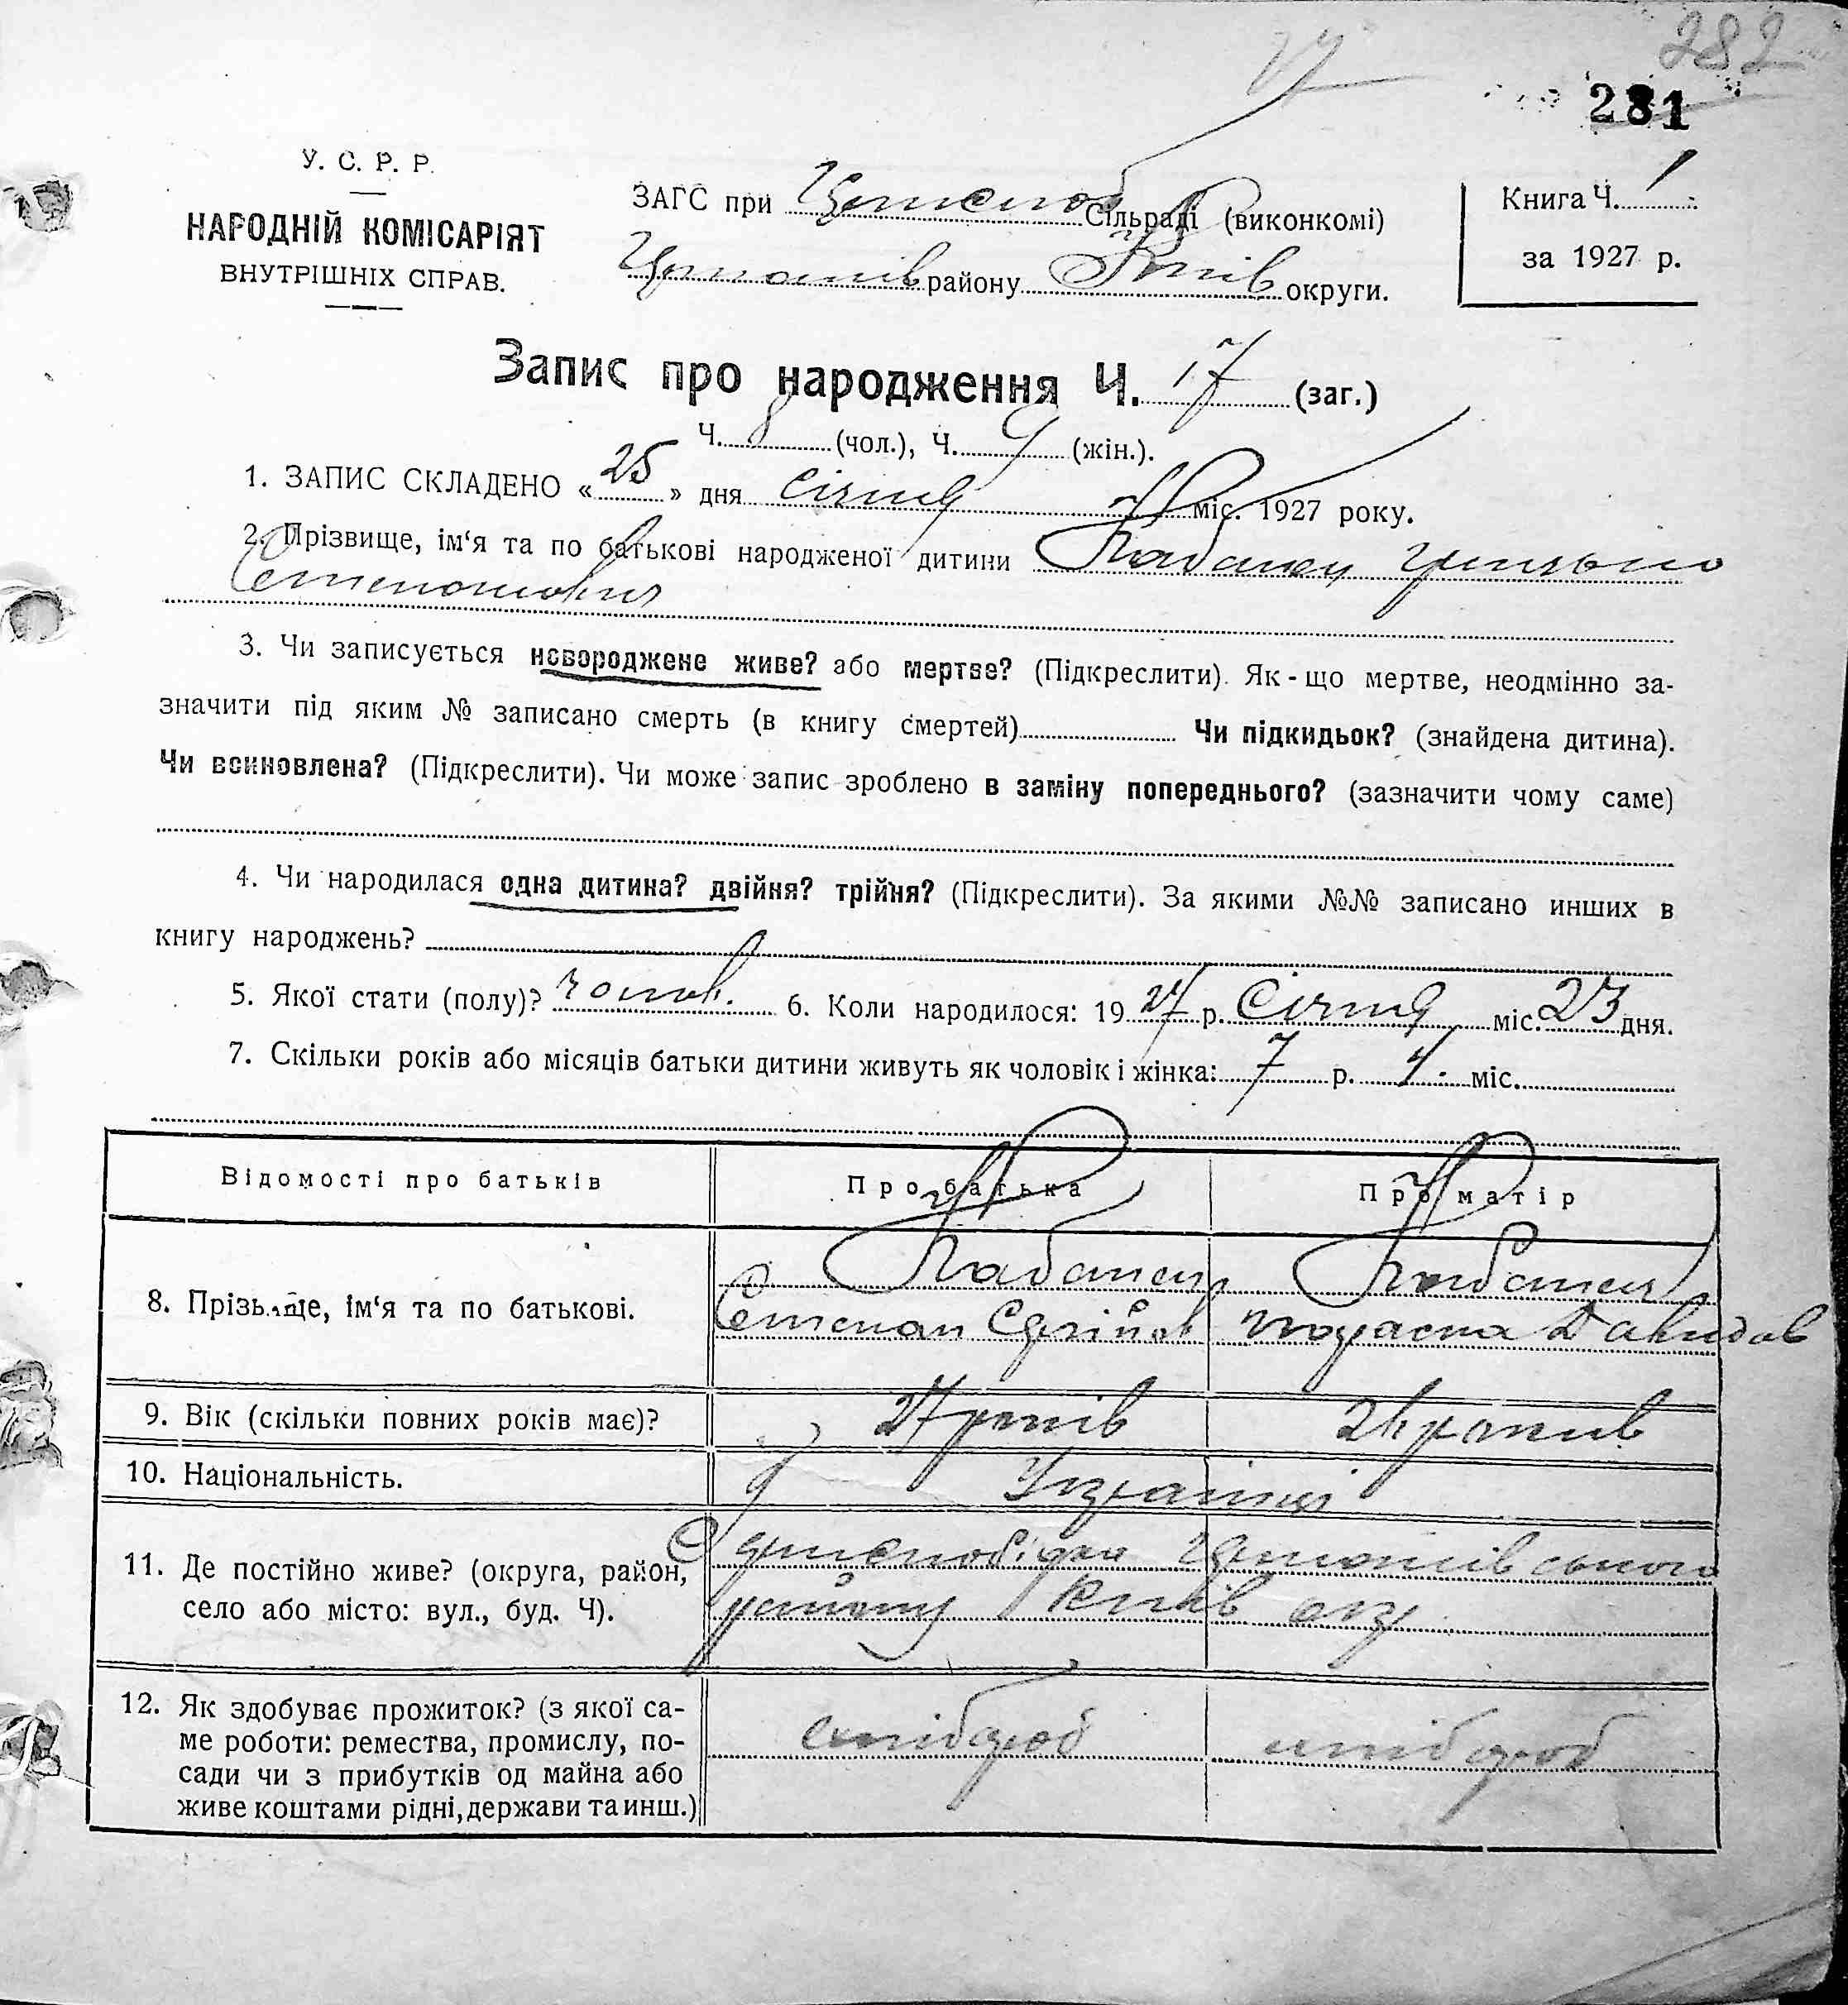 282
27
281
У. С. Р. Р.
НАРОДНІЙ КОМІСАРІЯТ
ВНУТРІШНІХ СПРАВ.
ЗАГС при Сільраді (виконкомі)
району Київ округи.
Книга Ч. 1
за 1927 р.
Запис про народження Ч. 17 (заг.)
Ч. 8 (чол.), Ч. 9 (жін.).
1. ЗАПИС СКЛАДЕНО « 25 » дня Січня міс. 1927 року.
2. Прізвище, ім‘я та по батькові народженої дитини Кабанец
Степанович
3. Чи записується новороджене живе? або мертве? (Підкреслити). Як-що мертве, неодмінно за-
значити під яким № записано смерть (в книгу смертей) Чи підкидьок? (знайдена дитина).
Чи всиновлена? (Підкреслити). Чи може запис зроблено в заміну попереднього? (зазначити чому саме)
4. Чи народилася одна дитина? двійня? трійня? (Підкреслити). За якими №№ записано инших в
книгу народжень?
5. Якої стати (полу)? чолов. 6. Коли народилося: 19 27 р. Січня міс. 23 дня.
7. Скільки років або місяців батьки дитини живуть як чоловік і жінка: 7 р. міс.
Відомості про батьків Про батька Про матір
8. Прізвище, ім‘я та по батькові. Кабанец Кабанец
Степан Параска Давидов
9. Вік (скільки повних років має)? 27 років
10. Національність. Українці
11. Де постійно живе? (округа, район,
село або місто: вул., буд. Ч). району Київ окр
12. Як здобуває прожиток? (з якої са-
ме роботи: ремества, промислу, по-
сади чи з прибутків од майна або
живе коштами рідні, держави та инш.) хлібороб хлібороб